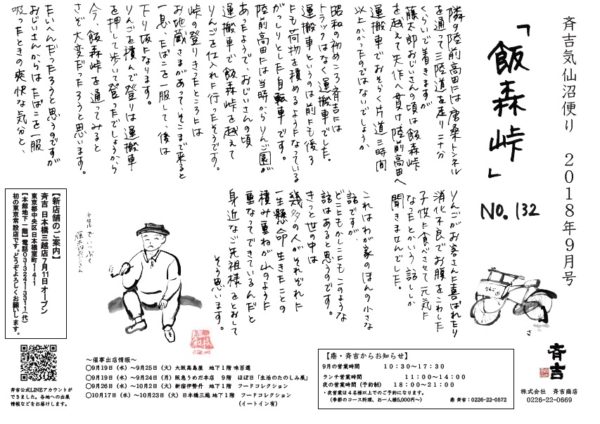 斉吉気仙沼便り　2018年9月号
「飯森峠」
No.132
隣の陸前高田には唐桑トンネル
を通って三陸道を走り二十分
くらいで着きますが
藤太郎おじいさんの頃は飯森峠
を越えて矢作へ貫け陸前高田へ
運搬車でおそらく片道三時間
以上かかったのでないでしょうか。
昭和の初めころ斉吉には
トラックはなく運搬車でした。
運搬車というのは前にも後ろ
にも荷物を積めるようになっている
がっしりとした自転車です。
陸前高田には当時からりんご園が
あったようでおじいさんの頃
運搬車で飯森峠を越えて
りんごを仕入れに行ったそうです。
峠の登りきったところには
お地蔵さまがあってそこまで来ると
一息、たばこを一服して、後は
下り坂になります。
りんごを積んで登りは運搬車
を押して歩いて登ったでしょうから
今、飯森峠を通ってみると
さぞ大変だったろうと思います。
たいへんだったろうと思うのですが
おじいさんからはたばこを一服
吸ったときの爽快な気分と、
りんごがお客さんに喜ばれたり
消化不良でお腹をこわした
子供に食べさせて元気に
なったとかいう話ししか
聞きませんでした。
これはわが家のほんの小さな
話ですが、
どこにもかしこにもこのような
話はあると思うのです。
きっと世の中は
幾多の人がそれぞれに
一生懸命生きたことの
積み重ねが山のように
重なってできているんだと
身近なご先祖様をとおして
そう思います。
【新店舗のご案内】
斉吉　日本橋三越店　7月11日オープン
【本館地下一階】電話03-3241-3311(代)
東京都中央区日本橋室町1-4-1
初の東京常設店です。どうぞよろしくお願いします。
斉吉公式LINEアカウントが
できました。各地への出展
情報などをお届けします。
〜催事出店情報〜
〇9月19日（水）〜9月25日（火）大阪高島屋　地下1階　味百選
〇9月19日（水）〜9月24日（月）阪急うめだ本店　9階　ほぼ日「生活のたのしみ展」
〇9月26日（水）〜10月2日（火）新宿伊勢丹　地下1階　フードコレクション
〇10月17日（水）〜10月23日（火）日本橋三越　地下1階　フードコレクション
（イートイン有）
【鼎・斉吉からお知らせ】
9月の営業時間　10:30〜17:30
ランチ営業時間　11:00〜14:00
夜の営業時間（予約制）　18:00〜21:00
・夜営業は4名様以上でのご予約になります。
（季節のコース料理、お一人様5,000円〜）　鼎・斉吉:0226-22-0572
斉吉
株式会社　斉吉商店
0226-22-0669